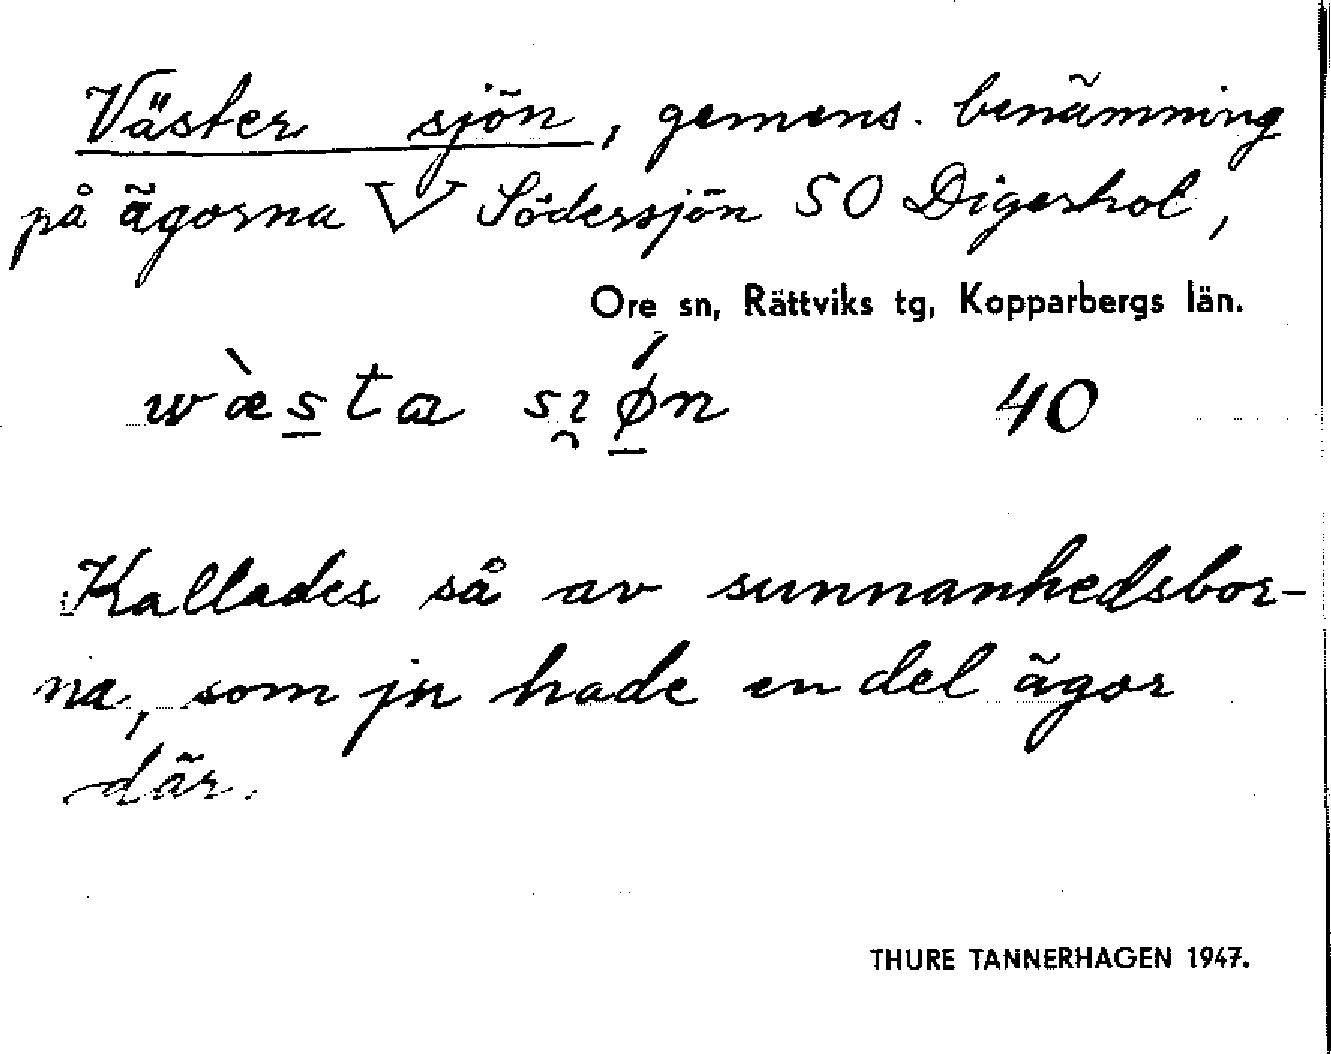 Väster sjön, gemens. benämning
på ägorna V Södersjön SO Digerhol,
Ore sn, Rättviks tg, Kopparbergs län.
wæ̀s̲ta sɿ̯ǿ̲n 40
Kallades så av sunnanhedsbor-
na, som ju hade en del ägor
där.
THURE TANNERHAGEN 1947.